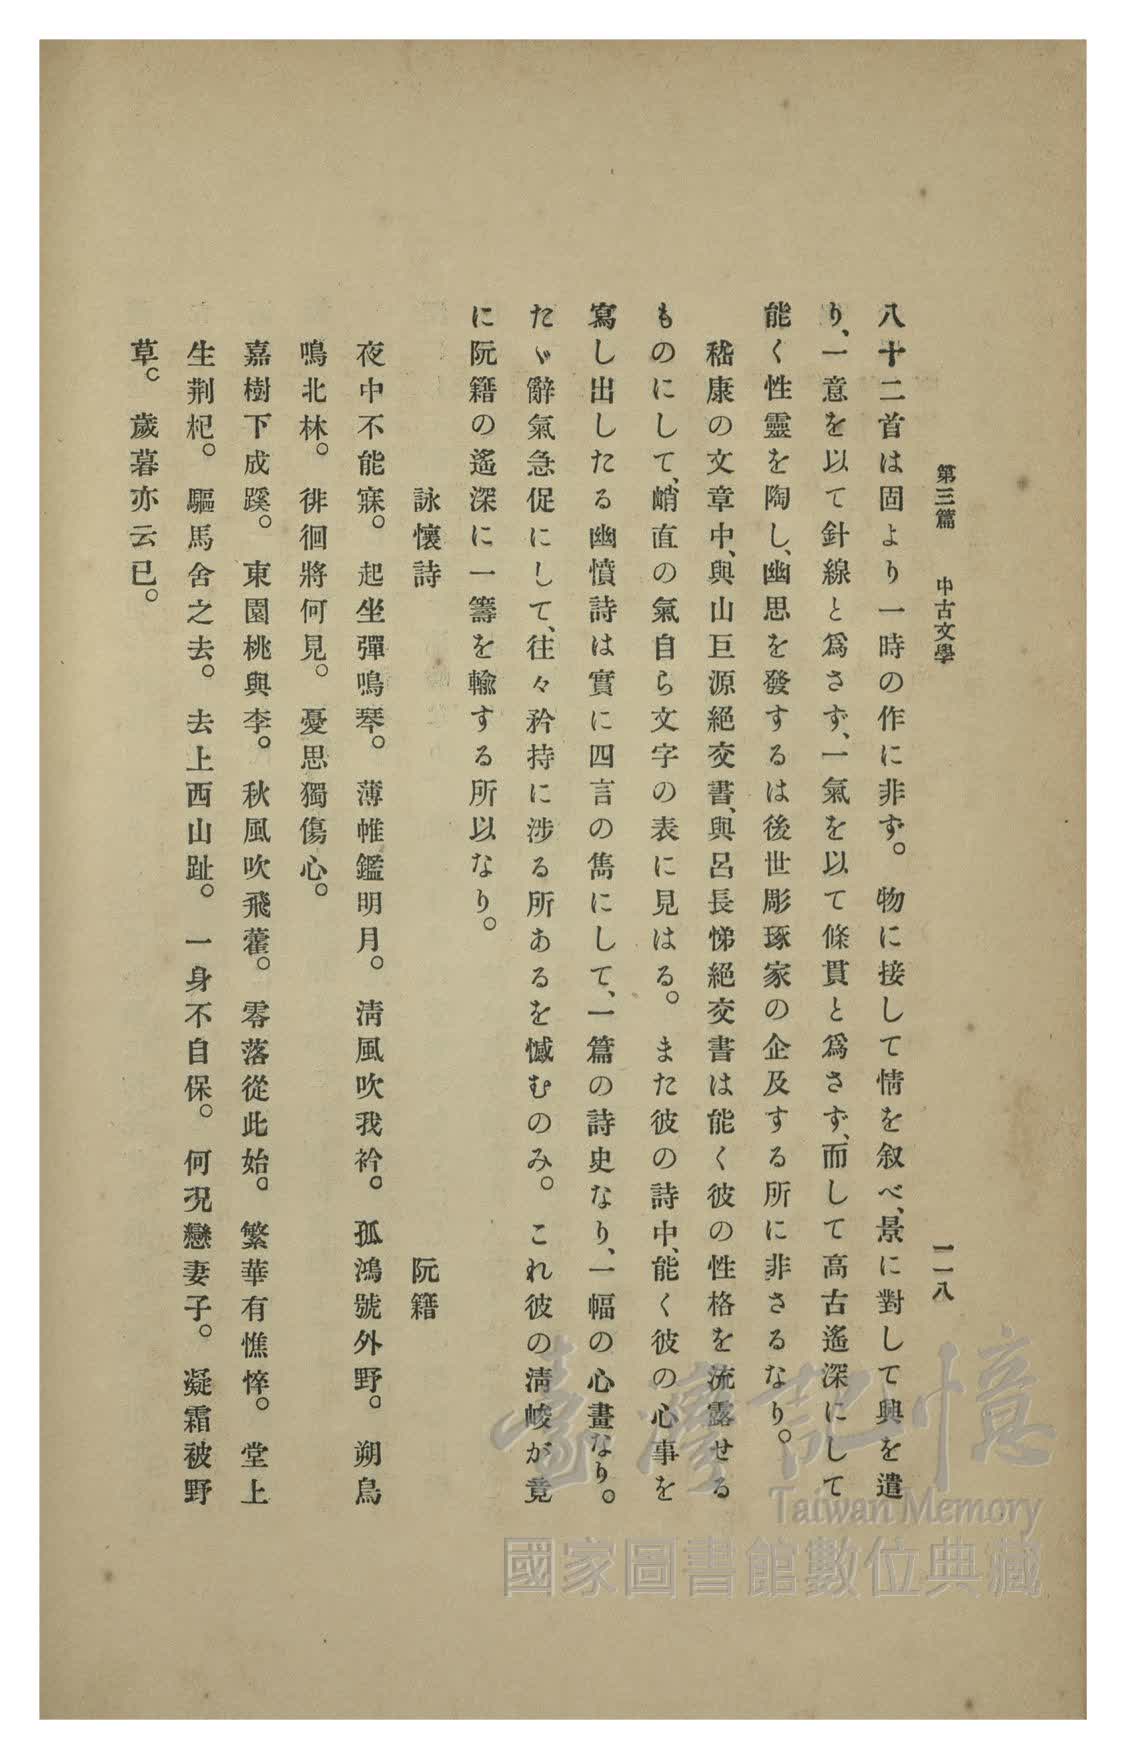 第三篇　中古文學
一一八
八十二首は固より一時の作に非ず。物に接して情を叙べ、景に對して興を遣
り、一意を以て針線と爲さず、一氣を以て條貫と爲さず、而して高古遙深にして
能く性靈を陶し、幽思を發するは後世彫琢家の企及する所に非さるなり。
嵇康の文章中、與山巨源絕交書、與呂長悌絕交書は能く彼の性格を流露せる
ものにして、峭直の氣自ら文字の表に見はる。また彼の詩中、能く彼の心事を
寫し出したる幽憤詩は實に四言の雋にして、一篇の詩史なり、一幅の心畫なり。
たゞ辭氣急促にして、往々矜持に涉る所あるを憾むのみ。これ彼の淸峻が竟
に阮籍の遙深に一籌を輸する所以なり。
詠懷詩　阮籍
夜中不能寐。起坐彈鳴琴。薄帷鑑明月。淸風吹我衿。孤鴻號外野。朔鳥
鳴北林。徘徊將何見。憂思獨傷心。
嘉樹下成蹊。東園桃與李。秋風吹飛藿。零落從此始。繁華有憔悴。堂上
生荆杞。驅馬舍之去。去上西山趾。一身不自保。何况戀妻子。凝霜被野
草。歲暮亦云已。
臺灣記憶
Taiwan Memory
國家圖書館數位典藏